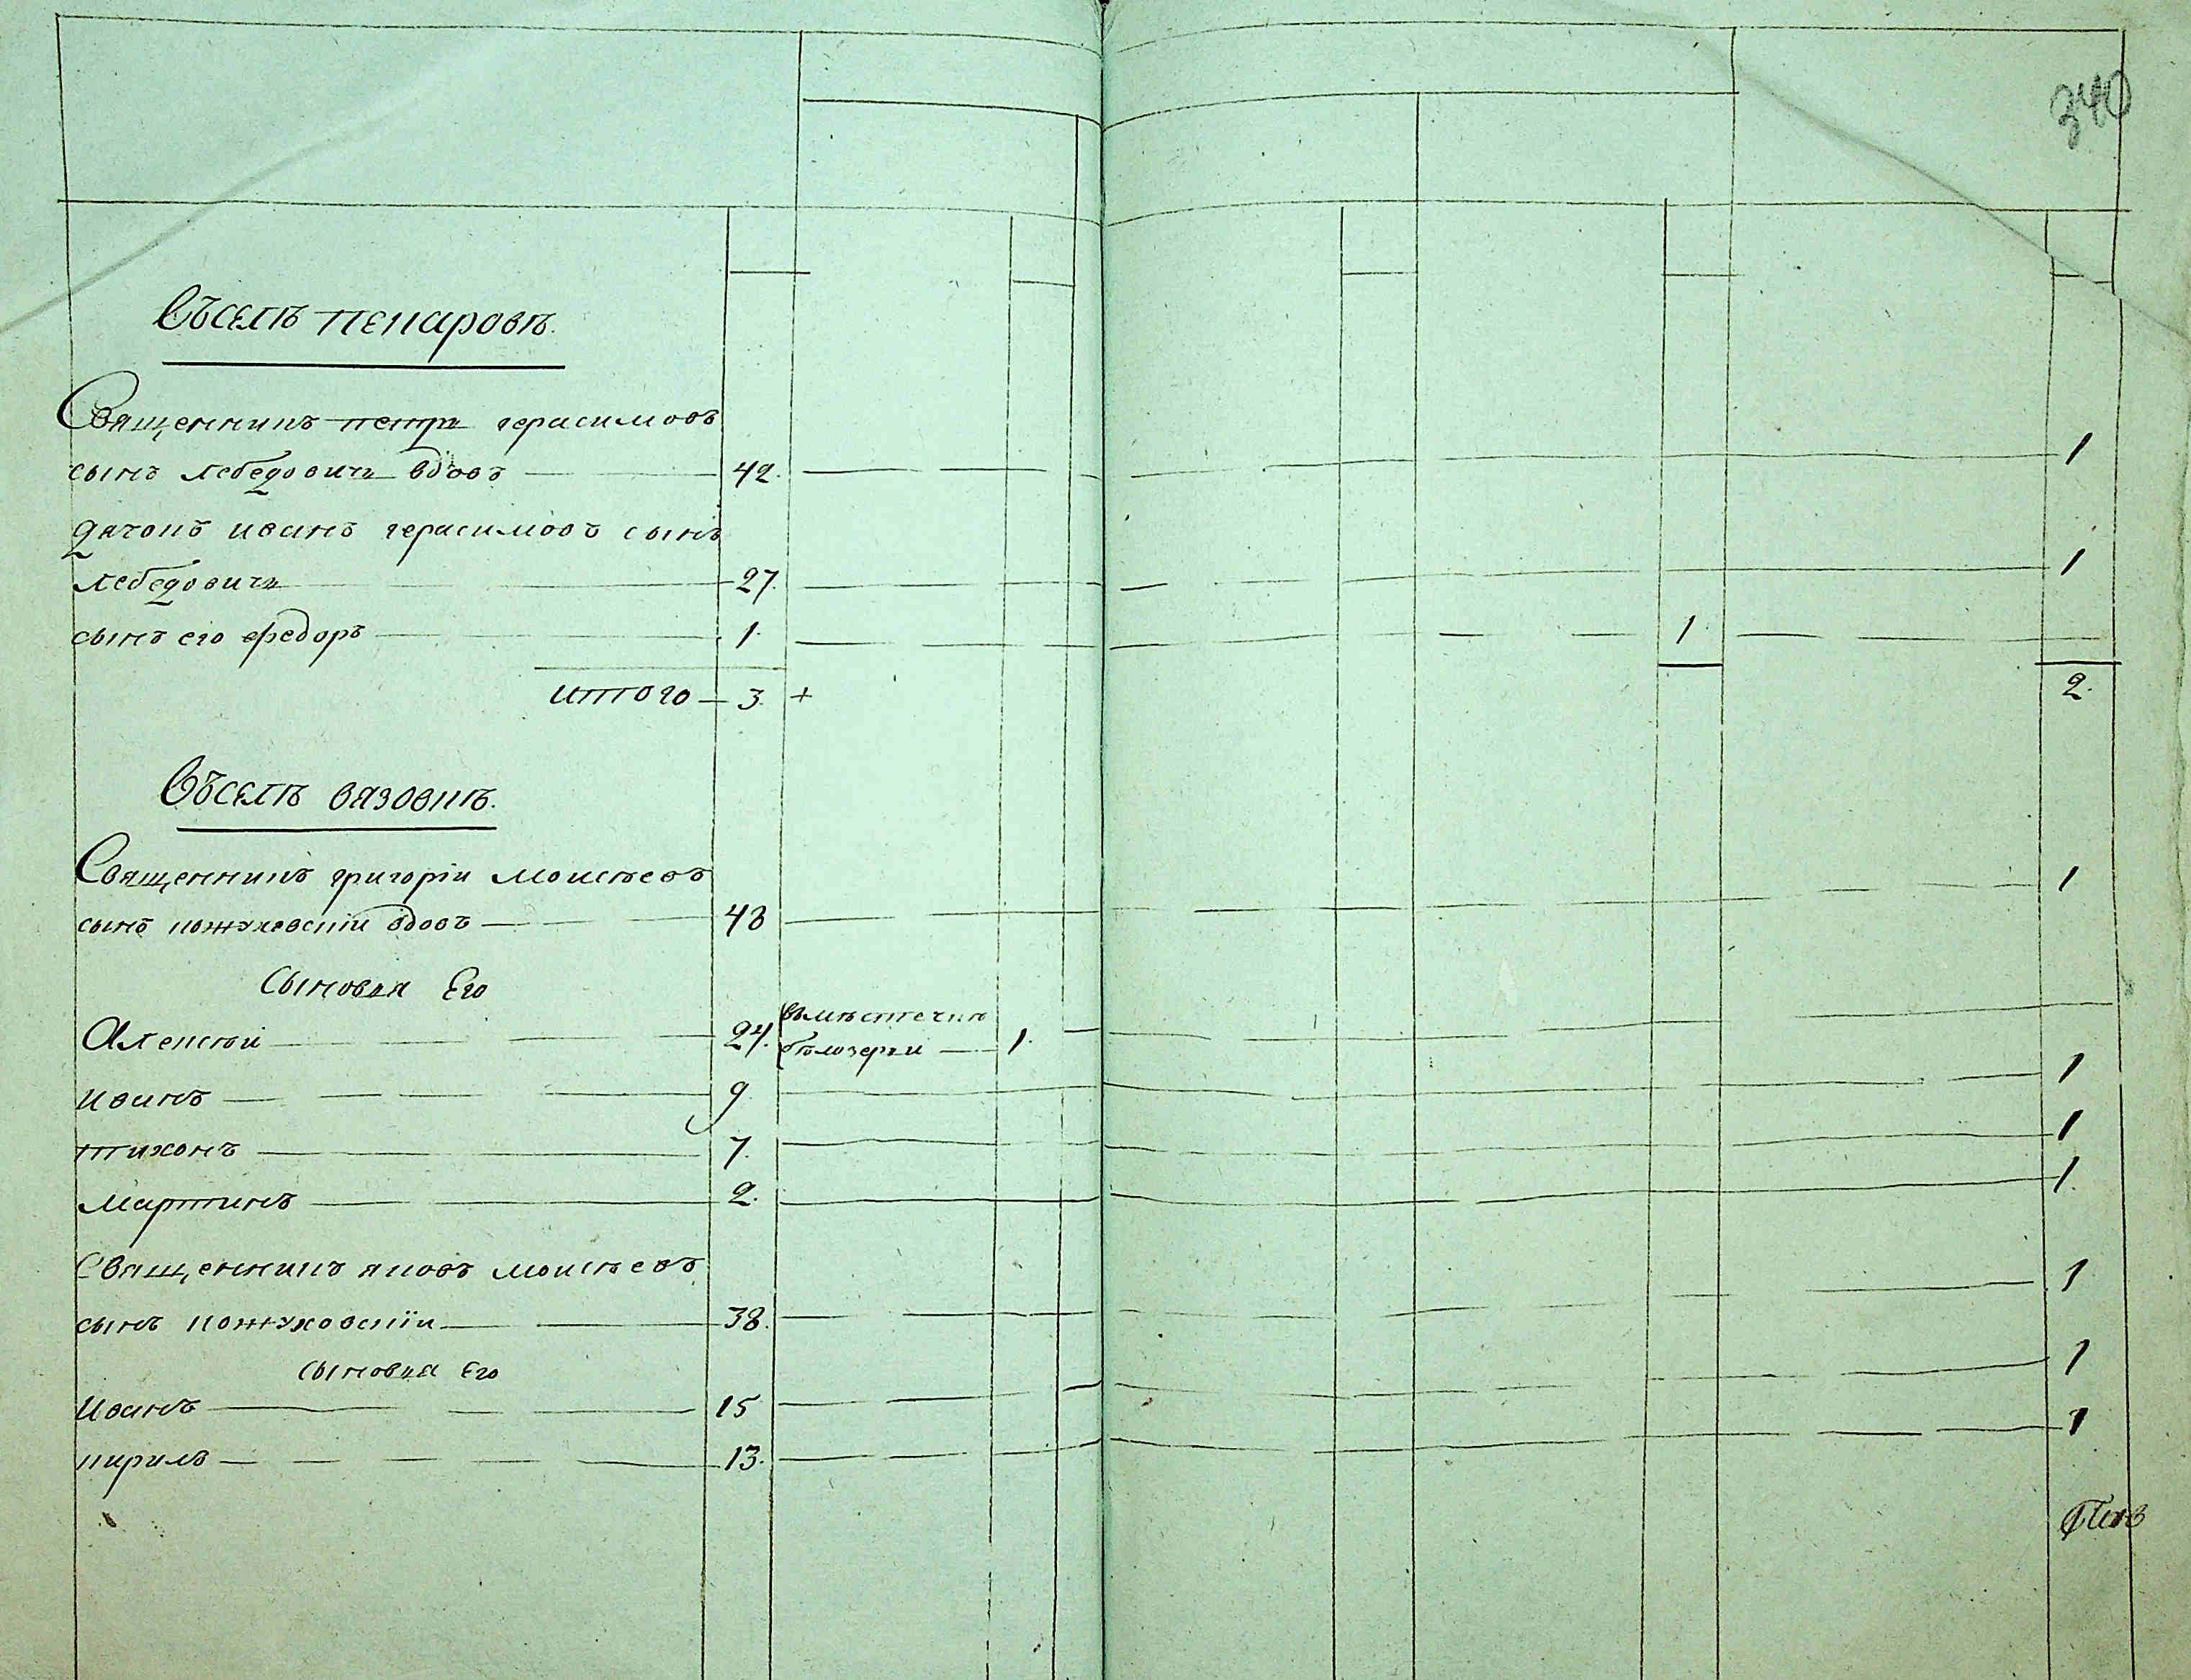 340
Въселѣ пекаровѣ.
Священникъ петръ герасимовъ
сынъ лебедовичъ вдовъ 42. 1
дячокъ иванъ герасимовъ сынъ
лебедовичъ 27. 1
сынъ его федоръ 1. 1.
итого 3. + 2.
Въселѣ вязовкѣ.
Священникъ григоріи моисѣевъ 1
сынъ кожуховскіи вдовъ 48
Сыновья Его
Алексѣи 24. въмѣстечкѣ
бѣлозерки 1.
иванъ 9. 1
тихонъ 7. 1
мартинъ 2. 1.
Священникъ яковъ моисѣевъ 1
сынъ кожуховскіи 38.
сыновья Его
Иванъ 15 1
кирилъ 13. 1